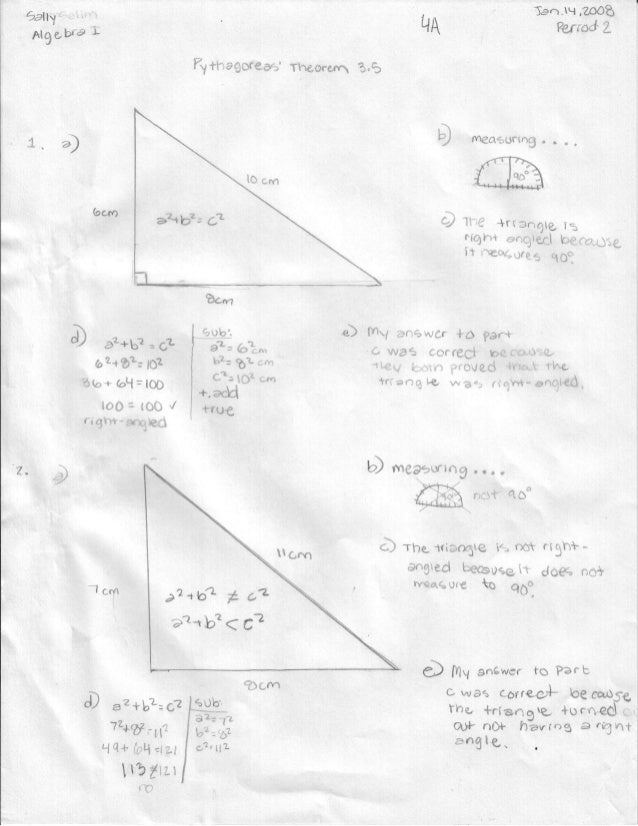 Sally Selim
Algebra I
4A
Jan. 14, 2008
Period 2
Pythagoreas' Theorem 3.5
1. a)
6cm
10 cm
a²+b²=c²
8cm
b) measuring....
90°
c) The triangle is
right angled because
it measures 90°.
d) a²+b²=c²
6²+8²=10²
36+64=100
100=100 ✓
right-angled
sub:
a²=6² cm
b²=8² cm
c²=10² cm
+, add
true
e) My answer to part
c was correct because
they both proved that the
triangle was right-angled.
2. a)
7cm
11cm
a²+b² ≠ c²
a²+b²<c²
8cm
b) measuring....
not 90°
c) The triangle is not right-
angled because it does not
measure to 90°.
d) a²+b²=c²
7²+8²=11²
49+64=121
113≠121
no
sub:
a²=7²
b²=8²
c²=11²
e) My answer to part
c was correct because
the triangle turned
out not having a right
angle.